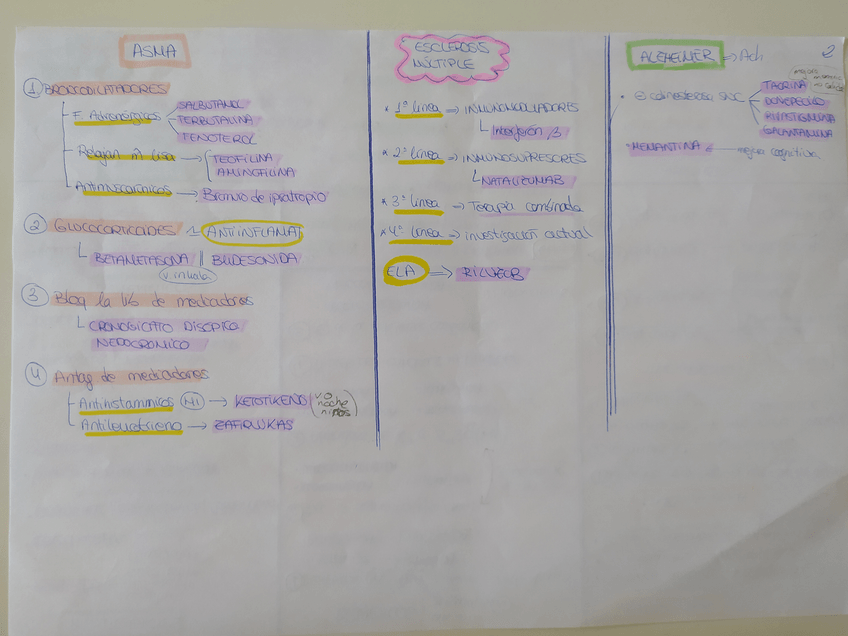 ASMA
① BRONCODILATADORES
F. Adrenérgicos
SALBUTAMOL
TERBUTALINA
FENOTEROL
Relajan m lisa → TEOFILINA
AMINOFILINA
Antimuscarínicos → Bromuro de ipratropio
② GLUCOCORTICOIDES ANTIINFLAMAT
BETAMETASONA || BUDESONIDA
V inhalada
③ Bloq la lib de mediadores
NEDOCROMICO
④ Antag de mediadores
Antihistamínicos (H1) → KETOTIFENO (V.O noche niños)
Antileucotrieno → ZAFIRLUKAS
ESCLEROSIS
MÚLTIPLE
* 1ª línea ⇒ INMUNOMODULADORES
Interferón β
* 2ª línea ⇒ INMUNOSUPRESORES
NATALIZUMAB
* 3ª línea → Terapia combinada
* 4ª línea → investigación actual
ELA ⇒ RILUZOL
2
ALZHEIMER ⇒ Ach
* colinesterasa SNC
TACRINA
DONEPECILO
RIVASTIGMINA
GALANTAMINA
* MEMANTINA cognitiva